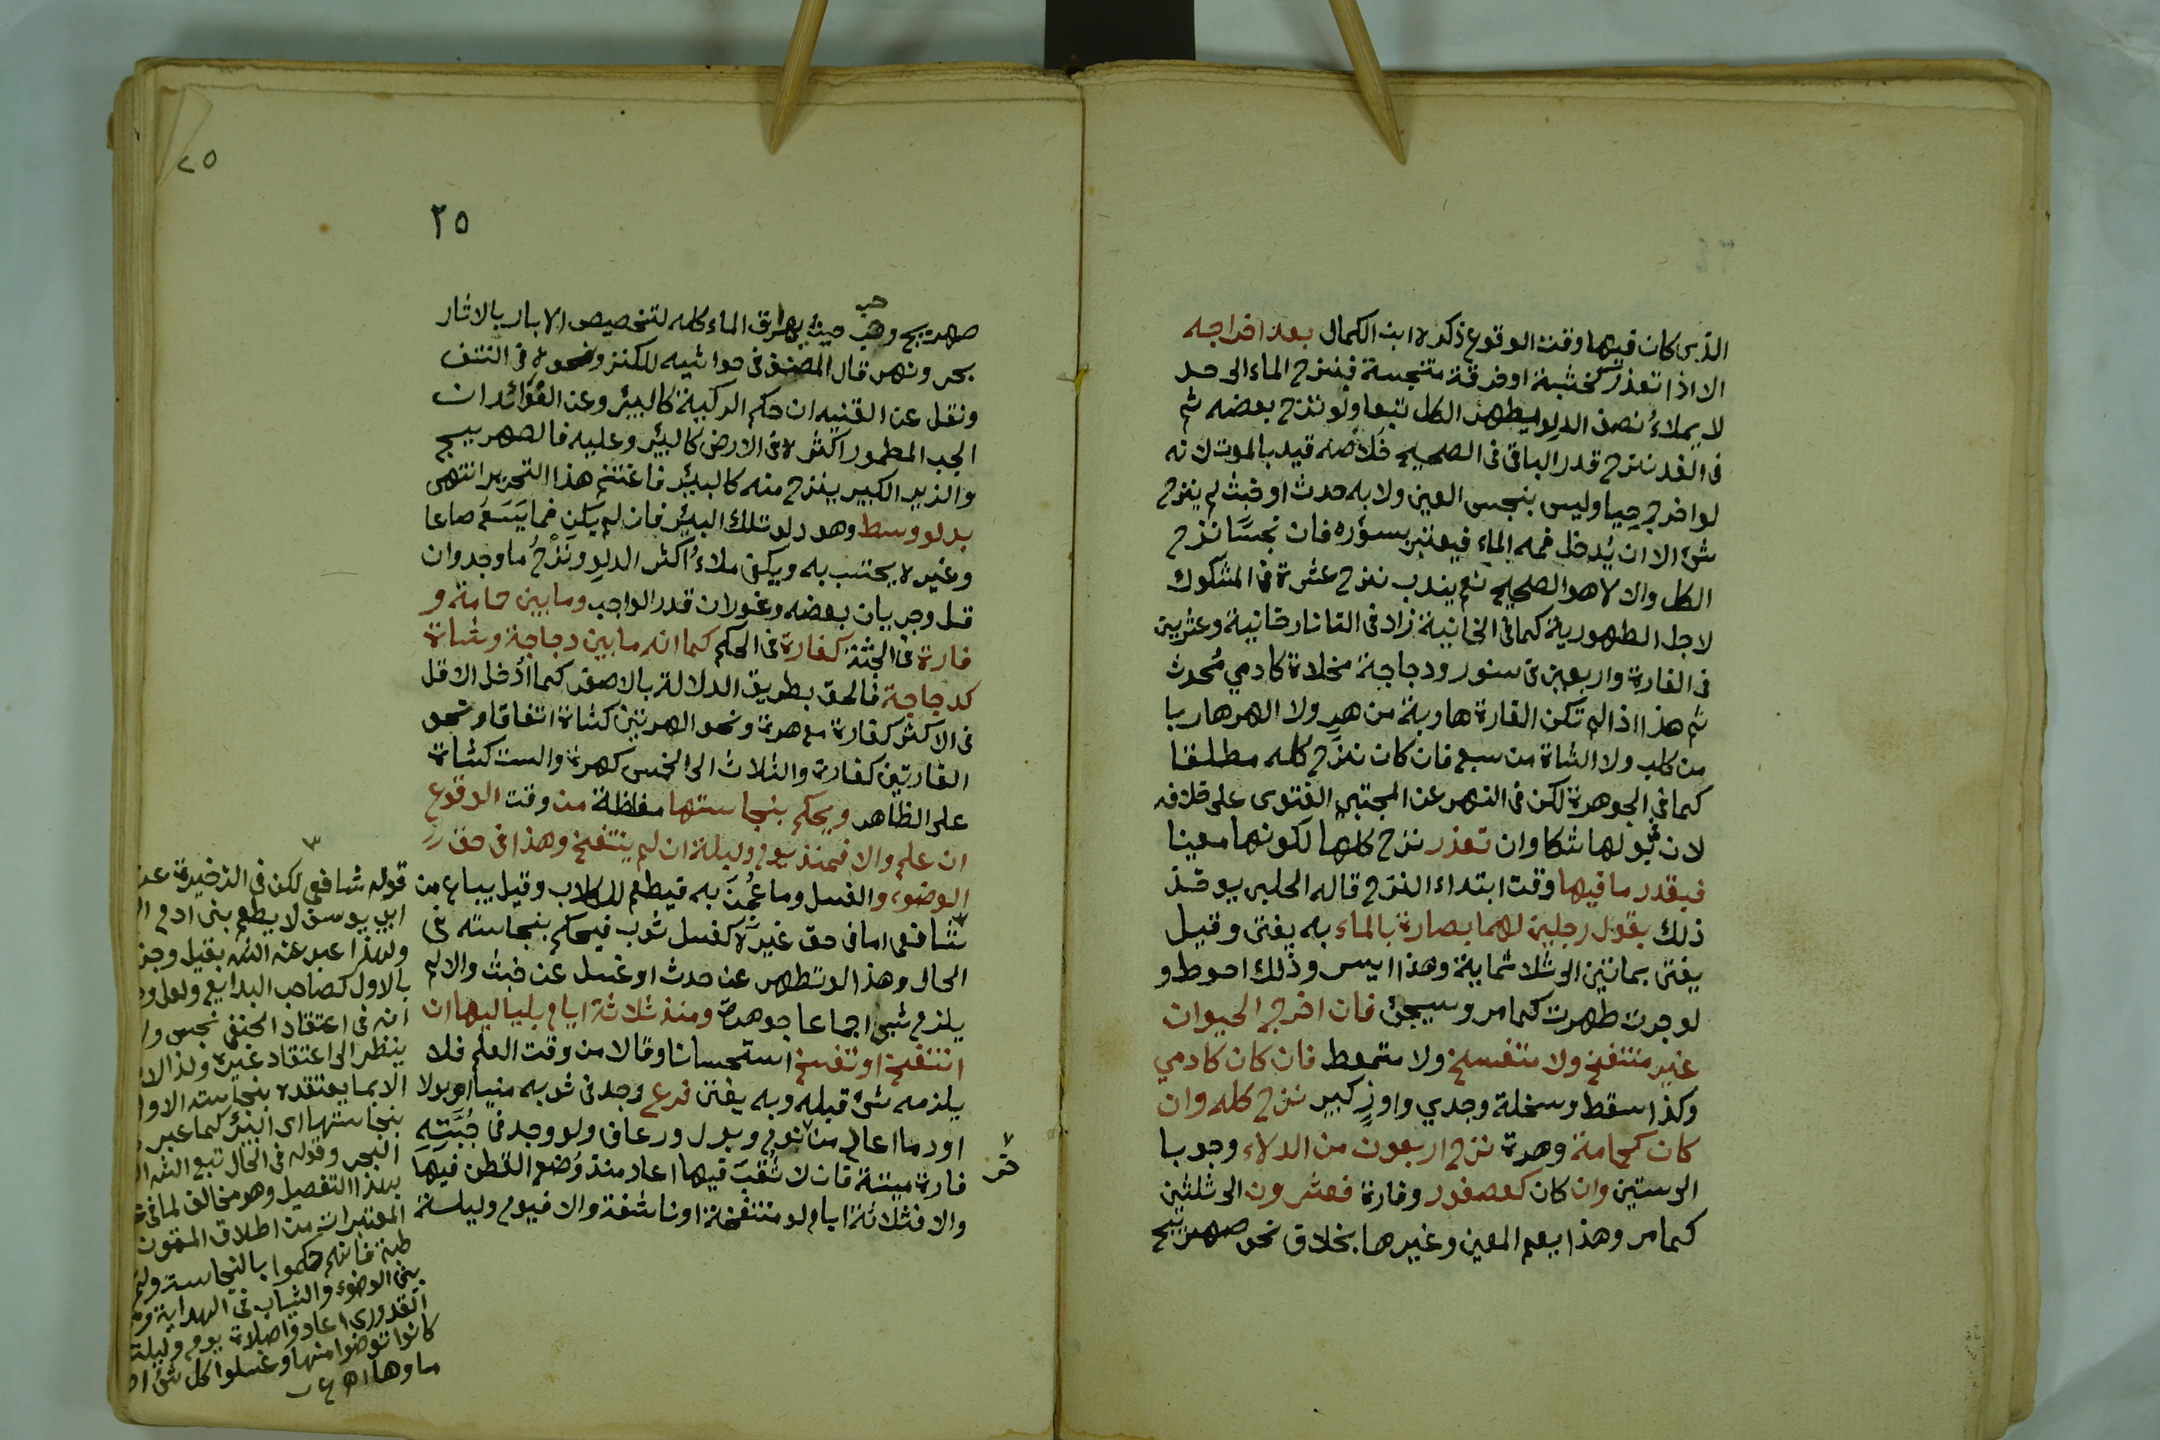 الذي كان فيها وقت الوقوع ذكره ابن الكمال بعد اخراجه
الا اذا تعذر كخشبة او خرقة متنجسة فينزح الماء الى حد
لا يملاء نصف الدلو يطهر الكل تبعا ولو نزح بعضه ثم
فى الغد نزح قدر الباقى فى الصحيح خلاصه قيد بالموت لانه
لو اخرج حيا وليس بنجس العين ولا به حدث او خبث لم ينزح
شئ الا ان يُدخل فمه الماء فيعتبر بسؤره فان نجسًا نزح
الكل والا لا هو الصحيح نعم يندب نزح عشرة فى المشكوك
لاجل الطهورية كما فى الخانية زاد فى التاتارخانية وعشرين
فى الفارة واربعين فى سنور ودجاجة مخلاة كادمي مُحدث
ثم هذا اذا لم تكن الفارة هاربة من هر ولا الهر هاربا
من كلب ولا الشاة من سبع فان كان نزح كله مطلقا
كما فى الجوهرة لكن فى النهر عن المجتبى الفتوى على خلافه
لان فى بولها شكا وان تعذر نزح كلها لكونها معينا
فبقدر ما فيها وقت ابتداء النزح قاله الحلبى يوخذ
ذلك بقول رجلين لهما بصارة بالماء به يفتى وقيل
يفتى بمائتين الى ثلاثمائة وهذا ايسر وذلك احوط و
لو جرت طهرت كما مر وسيجئ فان اخرج الحيوان
غير منتفخ ولا متفسخ ولا متمعط فان كان كادمي
وكذا سقط وسخلة وجدي واوز كبير نزح كله وان
كان كحمامة وهرة نزح اربعون من الدلاء وجوبا
الى ستين وان كان كعصفور وفارة فعشرون الى ثلثين
كما مر وهذا يعم المعين وغيرها بخلاف نحو صهريج
٢٥
٢٥
صهريج وحب حيث يهراق الماء كله لتخصيص الابار بالاثار
بحر ونهر قال المصنف فى حواشيه للكنز ونحوه فى النتف
ونقل عن القنيه ان حكم الركية كالبئر وعن الفوائد ان
الحب المطمور اكثره فى الارض كالبئر وعليه فالصهريج
والزير الكبير ينزح منه كالبئر فاغتنم هذا التحرير انتهى
بدلو وسط وهو دلو تلك البئر فان لم يكن فما يَسَعُ صاعا
وغيره يحتسب به ويكفى ملاءُ اكثر الدلو ونَزْحُ ما وجد وان
قل وجريان بعضه وغوران قدر الواجب وما بين حمامة و
فارة فى الجثة كفارة فى الحكم كما انه ما بين دجاجة وشاة
كدجاجة فالحق بطريق الدلالة بالاصغر كما ادخل الاقل
فى الاكثر كفارة مع هرة ونحو الهرتين كشاة اتفاقا ونحو
الفارتين كفارة والثلاث الى الخمس كهرة والست كشاة
على الظاهر ويحكم بنجاستها مغلظة من وقت الوقوع
ان علم والا فمنذ يوم وليلة ان لم ينتفخ وهذا فى حق
الوضوء والغسل وما عُجِنَ به فيطعم للكلاب وقيل يباع من
شافعى اما فى حق غيره كغسل ثوب فيحكم بنجاسته فى
الحال وهذا لو تطهر عن حدث او غسل عن خبث والا لم
يلزم شئ اجماعا جوهرة ومنذ ثلاثة ايام بلياليها ان
انتفخ او تفسخ استحسانا وقالا من وقت العلم فلا
يلزمه شئ قبله وبه يفتى فرع وجد فى ثوبه منيا او بولا
او دما اعاد من نوم وبول ورعاف ولو وجد فى جُبَّتِهِ
فارة ميتة فان لا ثُقبَ فيها اعاد منذ وُضع القطن فيها
والا فثلاثة ايام لو منتفخة او ناشفة والا فيوم وليلة
قوله شافعى لكن فى الذخيرة عن
ابى يوسف لا يطعم بنى ادم
ولهذا عبر عنه الشه بقيل وجز
بالاول كصاحب البدايع ولعل و
انه فى اعتقاد الحنفى نجس ولا
ينظر الى اعتقاد غيره ولذا الا
الا بما يعتقده بنجاسته الاو
بنجاستها اى البئر كما عبر
البحر وقوله فى الحال تبع الشه
بهذا التفصيل وهو مخالف لما فى
المعتبرات من اطلاق المتون
طبة فانهم حكموا بالنجاسة ولم
بين الوضوء والثياب فى الهداية و
القدورى اعادوا صلاة يوم وليلة
كانوا توضوا منها وغسلوا كل شئ ا
ماوها اه